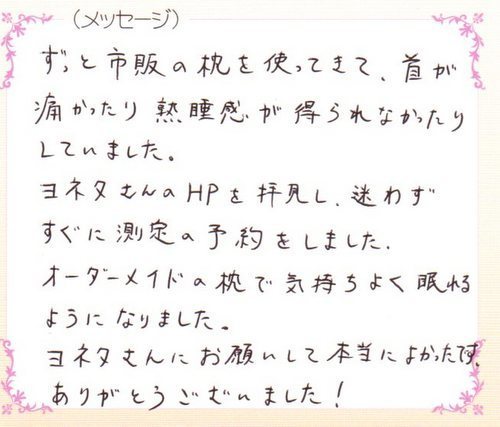 (メッセージ)
ずっと市販の枕を使ってきて、首が
痛かったり熟睡感が得られなかったり
していました。
ヨネタさんのHPを拝見し、迷わず
すぐに測定の予約をしました。
オーダーメイドの枕で気持ちよく眠れる
ようになりました。
ヨネタさんにお願いして本当によかったです。
ありがとうございました!